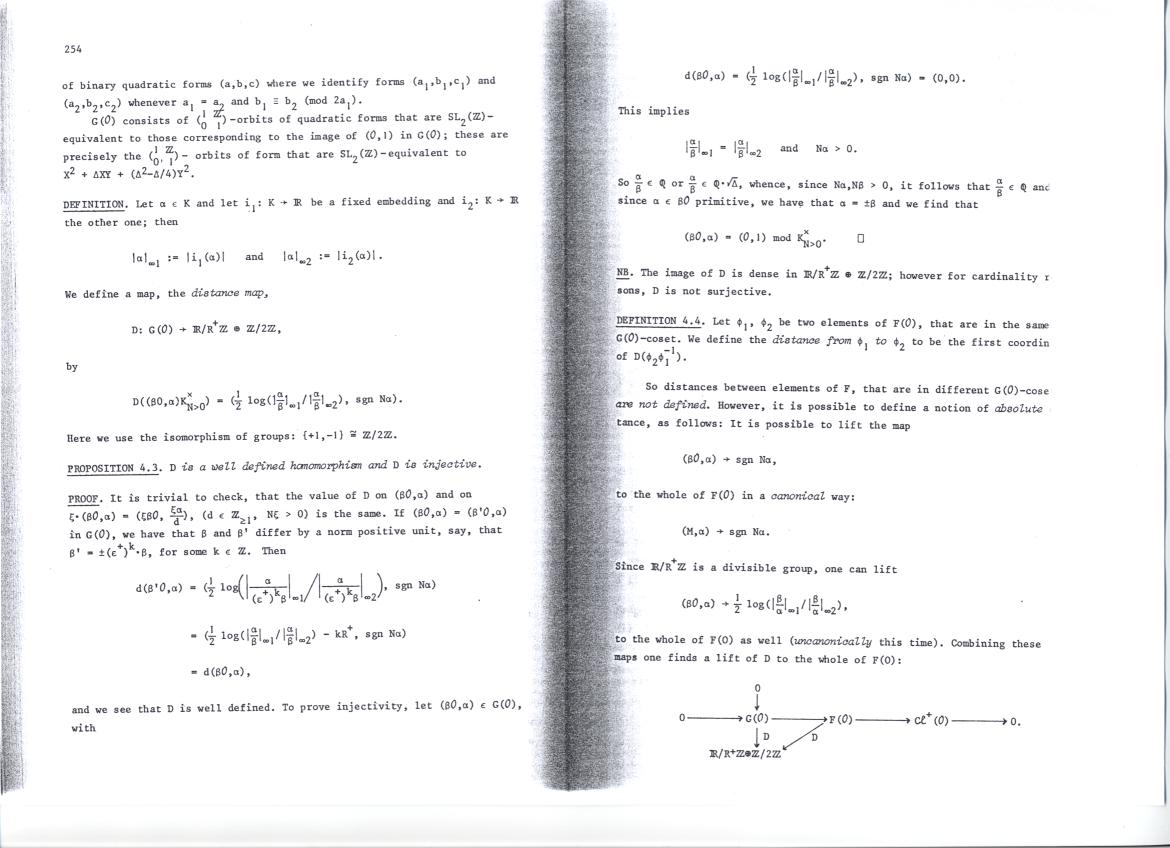 254
of binary quadratic forms (a,b,c) where we identify forms (a₁,b₁,c₁) and
(a₂,b₂,c₂) whenever a₁ = a₂ and b₁ ≡ b₂ (mod 2a₁).
G(O) consists of (1 ℤ; 0 1)-orbits of quadratic forms that are SL₂(ℤ)-
equivalent to those corresponding to the image of (O,1) in G(O); these are
precisely the (1 ℤ; 0 1)- orbits of form that are SL₂(ℤ)-equivalent to
X² + ΔXY + (Δ²-Δ/4)Y².
DEFINITION. Let α ϵ K and let i₁: K → ℝ be a fixed embedding and i₂: K → ℝ
the other one; then
|α|∞₁ := |i₁(α)| and |α|∞₂ := |i₂(α)|.
We define a map, the distance map,
D: G(O) → ℝ/R⁺ℤ ⊕ ℤ/2ℤ,
by
D((βO,α)K×N>0) = (½ log(|α/β|∞₁/|α/β|∞₂), sgn Nα).
Here we use the isomorphism of groups: {+1,-1} ≅ ℤ/2ℤ.
PROPOSITION 4.3. D is a well defined homomorphism and D is injective.
PROOF. It is trivial to check, that the value of D on (βO,α) and on
ξ·(βO,α) = (ξβO, ξα/d), (d ϵ ℤ≥1, Nξ > 0) is the same. If (βO,α) = (β'O,α)
in G(O), we have that β and β' differ by a norm positive unit, say, that
β' = ±(ε⁺)ᵏ·β, for some k ϵ ℤ. Then
d(β'O,α) = (½ log(|α/(ε⁺)ᵏβ|∞₁/|α/(ε⁺)ᵏβ|∞₂), sgn Nα)
= (½ log(|α/β|∞₁/|α/β|∞₂) - kR⁺, sgn Nα)
= d(βO,α),
and we see that D is well defined. To prove injectivity, let (βO,α) ϵ G(O),
with
d(βO,α) = (½ log(|α/β|∞₁/|α/β|∞₂), sgn Nα) = (0,0).
This implies
|α/β|∞₁ = |α/β|∞₂ and Nα > 0.
So α/β ϵ ℚ or α/β ϵ ℚ·√Δ, whence, since Nα,Nβ > 0, it follows that α/β ϵ ℚ and
since α ϵ βO primitive, we have that α = ±β and we find that
(βO,α) = (O,1) mod K×N>0. □
NB. The image of D is dense in ℝ/R⁺ℤ ⊕ ℤ/2ℤ; however for cardinality r
sons, D is not surjective.
DEFINITION 4.4. Let ϕ₁, ϕ₂ be two elements of F(O), that are in the same
G(O)-coset. We define the distance from ϕ₁ to ϕ₂ to be the first coordin
of D(ϕ₂ϕ₁⁻¹).
So distances between elements of F, that are in different G(O)-cose
are not defined. However, it is possible to define a notion of absolute
tance, as follows: It is possible to lift the map
(βO,α) → sgn Nα,
to the whole of F(O) in a canonical way:
(M,α) → sgn Nα.
Since ℝ/R⁺ℤ is a divisible group, one can lift
(βO,α) → ½ log(|β/α|∞₁/|β/α|∞₂),
to the whole of F(O) as well (uncanonically this time). Combining these
maps one finds a lift of D to the whole of F(O):
0
0 → G(O) → F(O) → Cℓ⁺(O) → 0.
D D
ℝ/R⁺ℤ⊕ℤ/2ℤ